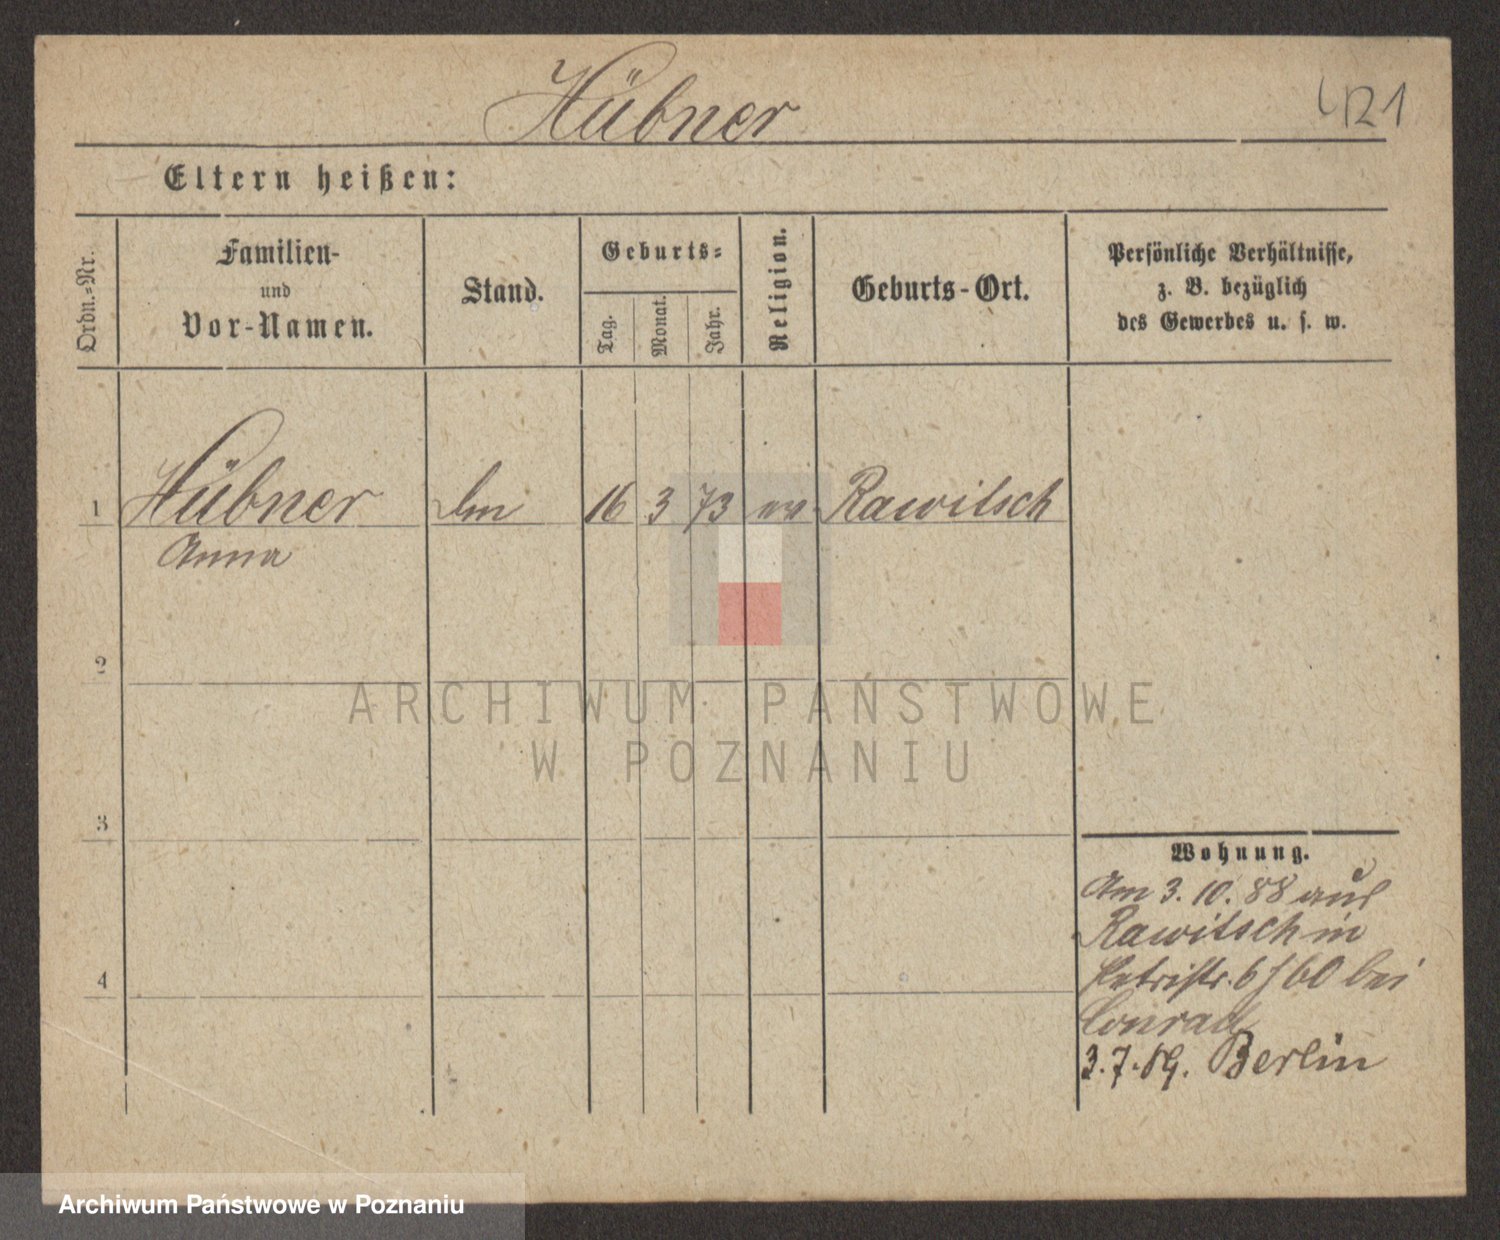 Hübner
421
Eltern heißen:
Ordn.-Nr.
Familien-
und
Vor-Namen.
Stand.
Geburts-
Tag.
Monat.
Jahr.
Religion.
Geburts-Ort.
Persönliche Verhältnisse,
z. B. bezüglich
des Gewerbes u. s. w.
1 Hübner 16 3 73 ev Rawitsch
Anna
2
3
4
ARCHIWUM PAŃSTWOWE
W POZNANIU
Wohnung.
Am 3. 10. 88 aus
Rawitsch in
Petristr. 6 f 60 bei
Conrad
3. 7. 89. Berlin
Archiwum Państwowe w Poznaniu